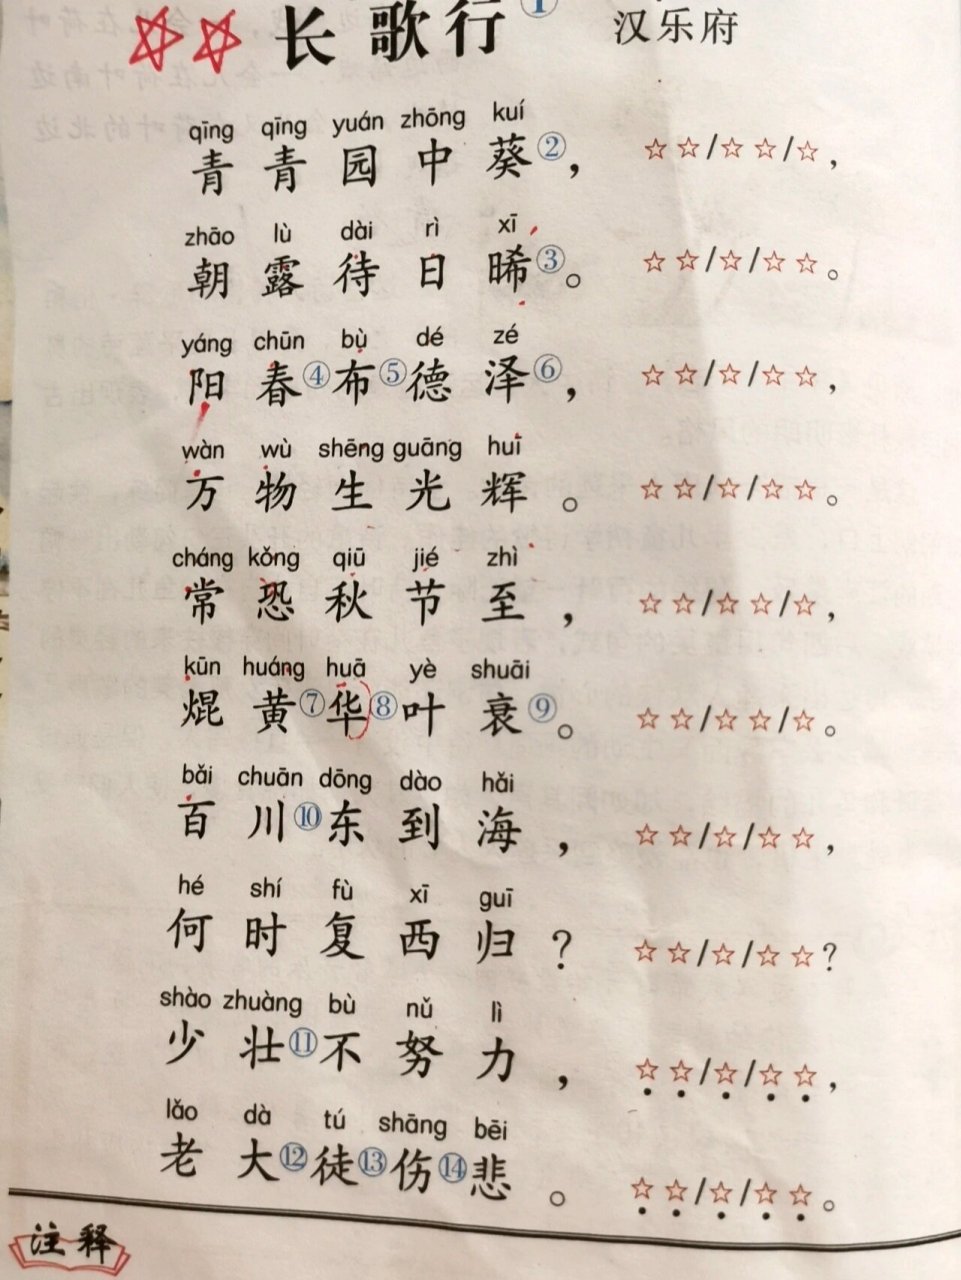 长歌行①
汉乐府
qīng qīng yuán zhōng kuí
青青园中葵②，☆☆/☆☆/☆，
zhāo lù dài rì xī
朝露待日晞③。☆☆/☆/☆☆。
yáng chūn bù dé zé
阳春④布⑤德泽⑥，☆☆/☆/☆☆，
wàn wù shēng guāng huī
万物生光辉。☆☆/☆/☆☆。
cháng kǒng qiū jié zhì
常恐秋节至，☆☆/☆☆/☆，
kūn huáng huā yè shuāi
焜黄⑦华⑧叶衰⑨。☆☆/☆☆/☆。
bǎi chuān dōng dào hǎi
百川⑩东到海，☆☆/☆/☆☆，
hé shí fù xī guī
何时复西归？☆☆/☆/☆☆？
shào zhuàng bù nǔ lì
少壮⑪不努力，☆☆/☆/☆☆，
lǎo dà tú shāng bēi
老大⑫徒⑬伤⑭悲。☆☆/☆/☆☆。
注释